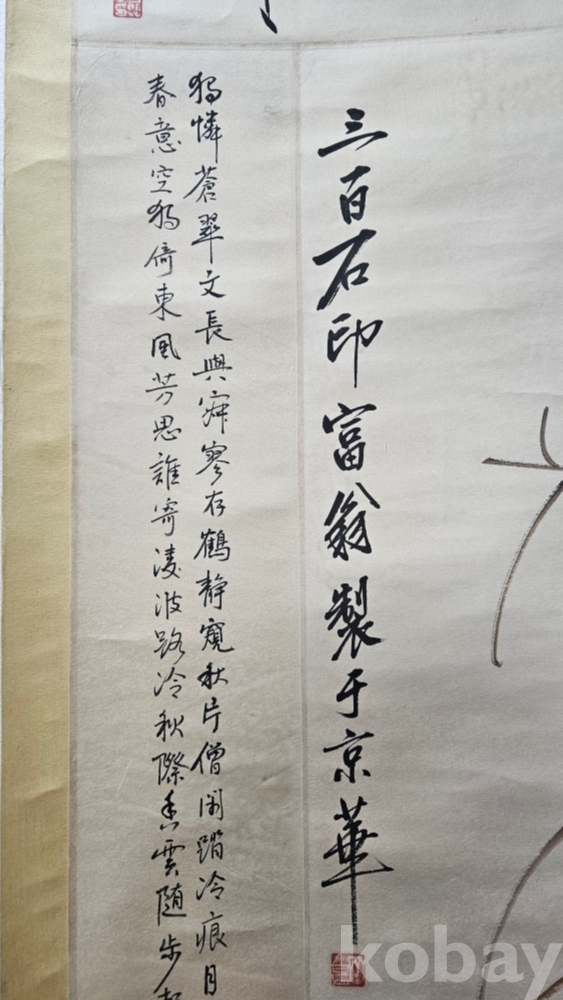 三百石印富翁製于京華
獨憐蒼翠文長與寂寥存鶴静窺秋片僧閑踏冷痕月
春意空獨倚東風芳思誰寄凌波路冷秋際香雲隨步
kobay